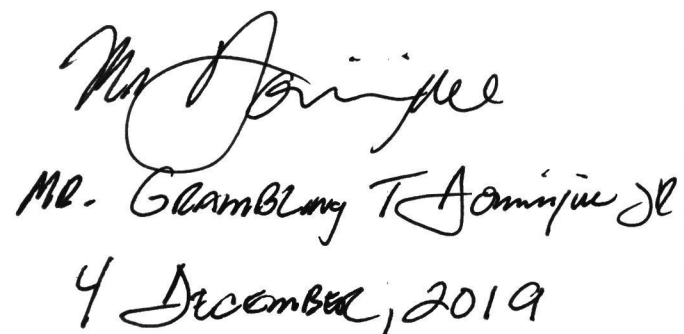 Mr Dominique
MR. GRAMBLING T Dominique JR
4 DECEMBER, 2019